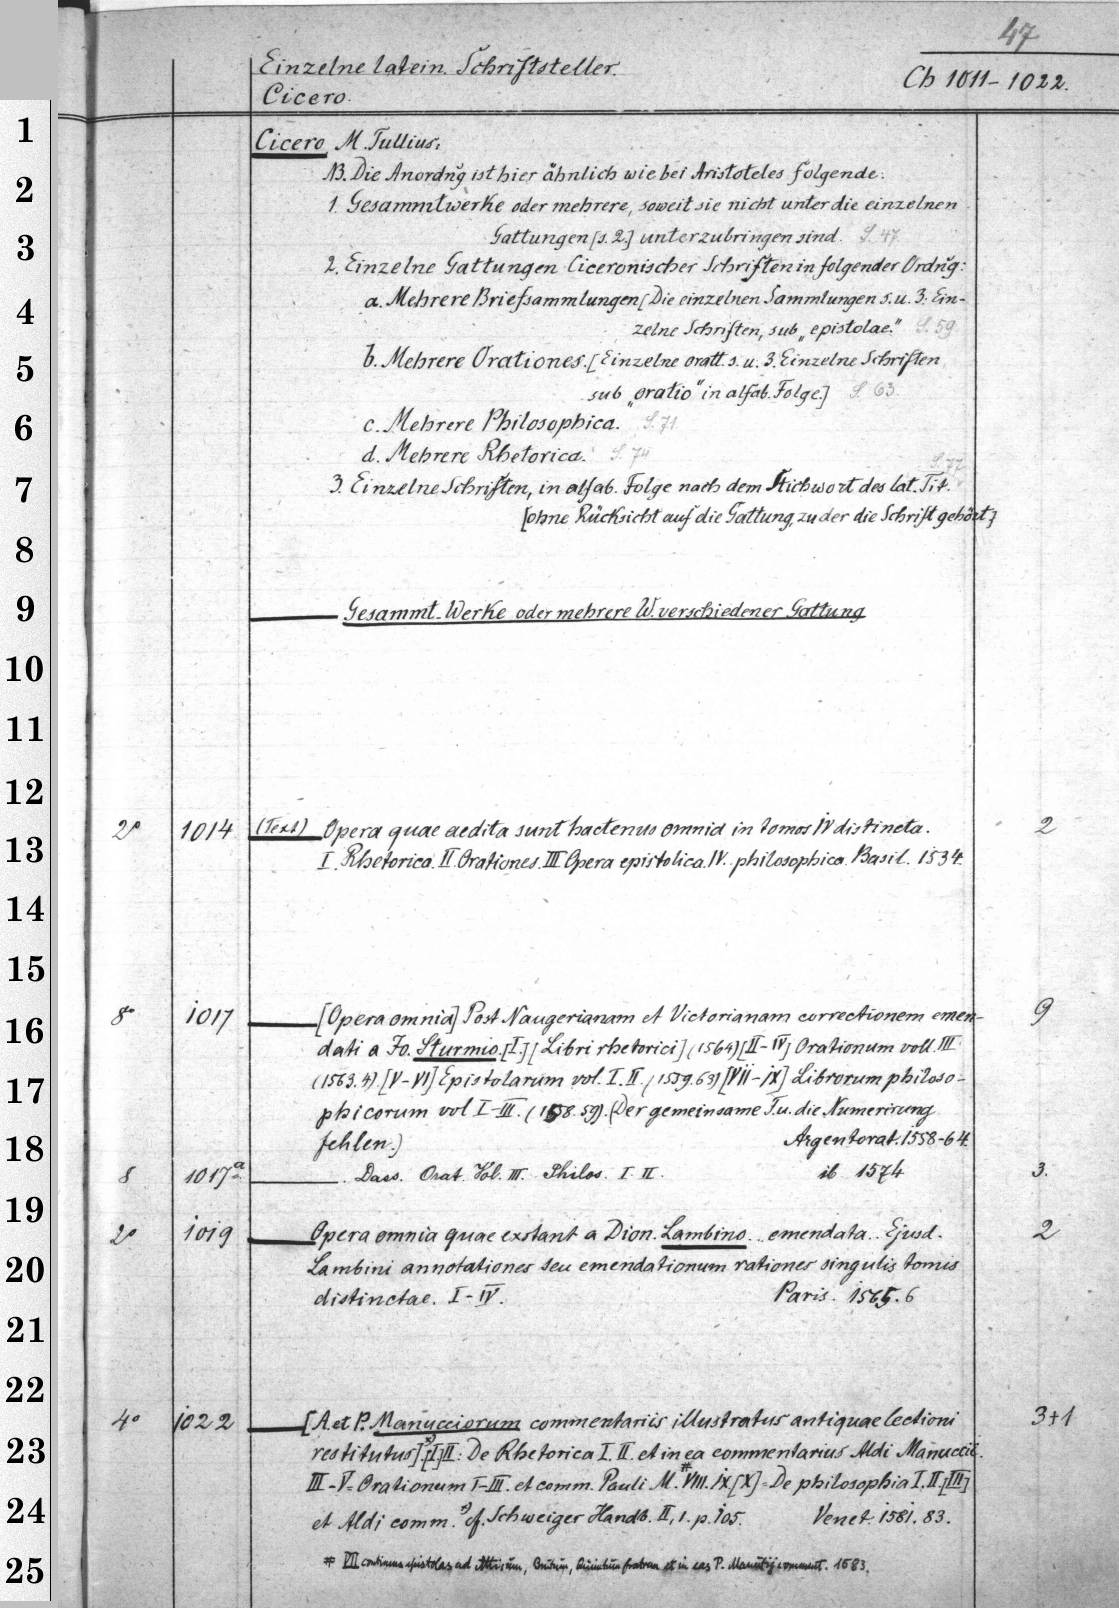 47
Einzelne latein. Schriftsteller.
Ch 1011-1022.
Cicero.
1
Cicero, M. Tullius.
NB. Die Anordn̄g ist hier ähnlich wie bei Aristoteles folgende:
2
1. Gesammtwerke oder mehrere, soweit sie nicht unter die einzelnen
3
Gattungen [s. 2.] unterzubringen sind. S. 47
2. Einzelne Gattungen Ciceronischer Schriften in folgender Ordn̄g:
4
a. Mehrere Briefsammlungen [Die einzelnen Sammlungen s. u. 3. Ein-
zelne Schriften, sub „epistolae." S. 59
5
b. Mehrere Orationes. [Einzelne oratt. s. u. 3. Einzelne Schriften
sub „oratio" in alfab. Folge.] S. 63
6
c. Mehrere Philosophica. S. 71
d. Mehrere Rhetorica. S. 74
S. 77
7
3. Einzelne Schriften, in alfab. Folge nach dem Stichwort des lat. Tit.
[ohne Rücksicht auf die Gattung, zu der die Schrift gehört]
8
9
Gesammt-Werke oder mehrere W. verschiedener Gattung
10
11
12
2° 1014 (Text) Opera quae aedita sunt hactenus omnia in tomos IV distincta. 2
13
I. Rhetorica. II. Orationes. III Opera epistolica. IV. philosophica. Basil. 1534.
14
15
8° 1017 [Opera omnia] Post Naugerianam et Victorianam correctionem emen- 9
16
dati a Jo. Sturmio. [I.] [Libri rhetorici] (1564) [II-IV] Orationum voll. III
17
(1563.4). [V-VI] Epistolarum vol. I. II. (1559.63) [VII-IX] Librorum philoso-
phicorum vol I-III. (1558.59). (Der gemeinsame T. u. die Numerirung
18
fehlen.) Argentorat. 1558-64.
8 1017a. Dass. Orat. Vol. III. Philos. I II. ib 1574 3.
19
2° 1019 Opera omnia quae exstant a Dion. Lambino .. emendata .. Ejusd. 2
20
Lambini annotationes seu emendationum rationes singulis tomis
distinctae. I-IV. Paris. 1565.6
21
22
4° 1022 [A. et P. Manucciorum commentariis illustratus antiquae lectioni 3+1
23
restitutus].*) [I] II: De Rhetorica I. II. et in ea commentarius Aldi Manuccii.
III-V = Orationum I-III. et comm. Pauli M. # VIII. IX [X] = De philosophia I. II. [III]
24
et Aldi comm. *) cf. Schweiger Handb. II, 1. p. 105. Venet. 1581. 83.
25
# VII continens epistolas ad Atticum, Brutum, Quintum fratrem et in eas P. Manutij comment. 1583.